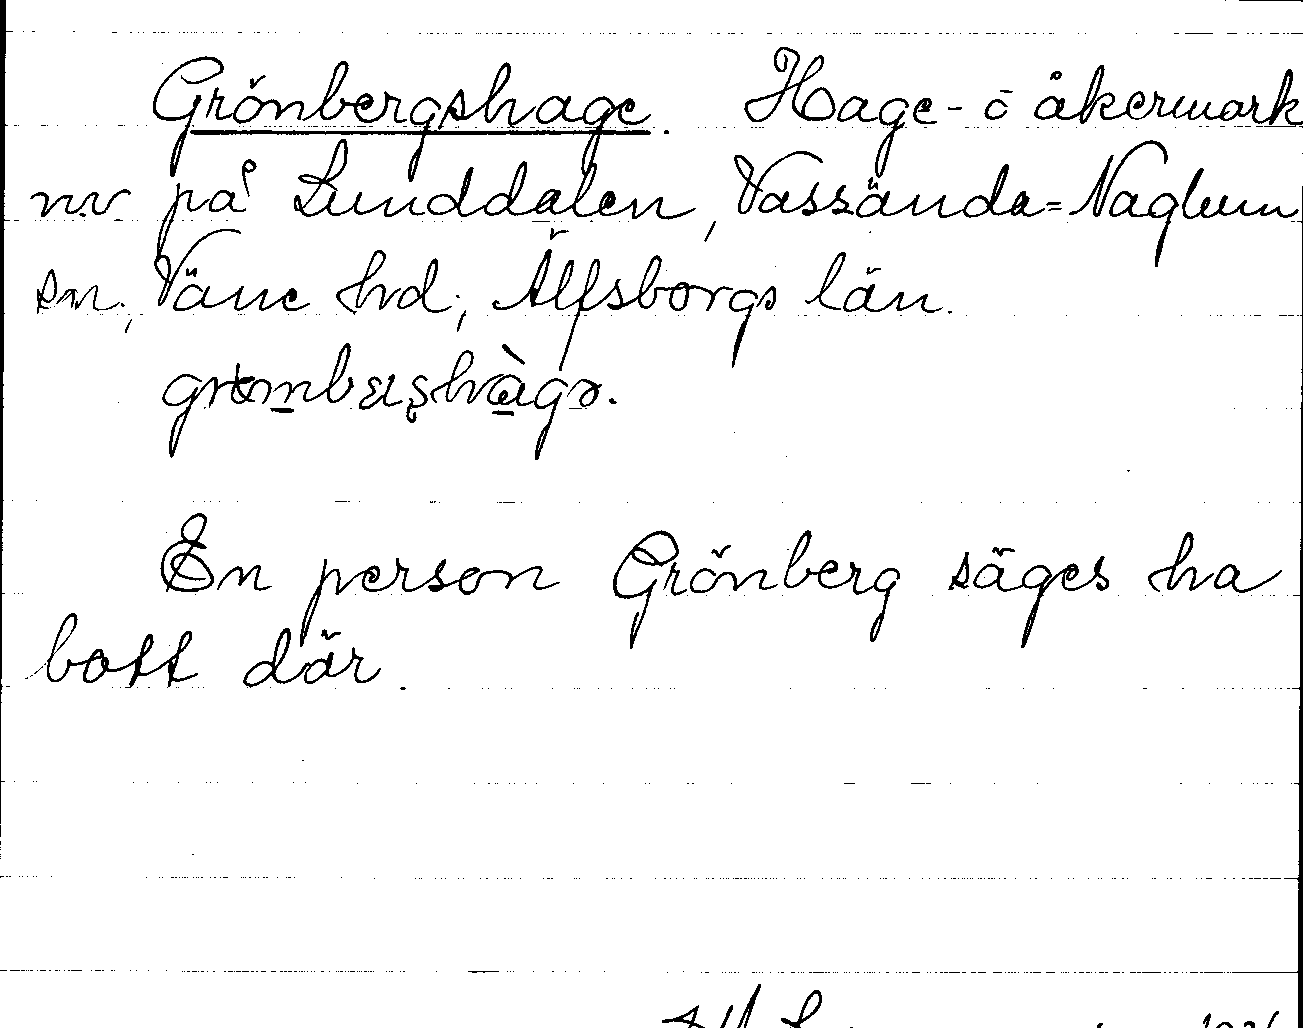 Grönbergshage. Hage- o åkermark
n.v. på Lunddalen, Vassända=Naglum
sn., Väne hd., Älfsborgs län.
En person Grönberg säges ha
bott där.